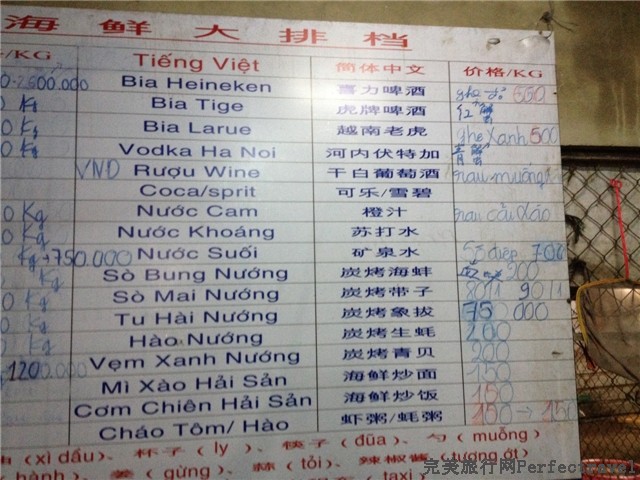 海鲜大排档
/KG Tiếng Việt 简体中文 价格/KG
Bia Heineken 喜力啤酒 ghẹ đỏ 550
Bia Tige 虎牌啤酒 红
Bia Larue 越南老虎 ghẹ Xanh 500
Vodka Ha Noi 河内伏特加
VND Rượu Wine 干白葡萄酒 rau muống
Coca/sprit 可乐/雪碧
0 Kg Nước Cam 橙汁 rau cải xào
Nước Khoáng 苏打水
Kg 750.000 Nước Suối 矿泉水 Sò điệp
Kg Sò Bung Nướng 炭烤海蚌 200
0 Kg Sò Mai Nướng 炭烤带子
0 Kg Tu Hài Nướng 炭烤象拔 000
Hào Nướng 炭烤生蚝 200
Vẹm Xanh Nướng 炭烤青贝 200
1200.000 Mì Xào Hải Sản 海鲜炒面 150
Cơm Chiên Hải Sản 海鲜炒饭 150
Cháo Tôm/ Hào 虾粥/蚝粥 150 → 150
(xì dầu)、杯子(ly)、筷子(đũa)、勺(muỗng)
hành)、姜(gừng)、蒜(tỏi)、辣椒酱(tương ớt)
(taxi)
完美旅行网Perfectravel